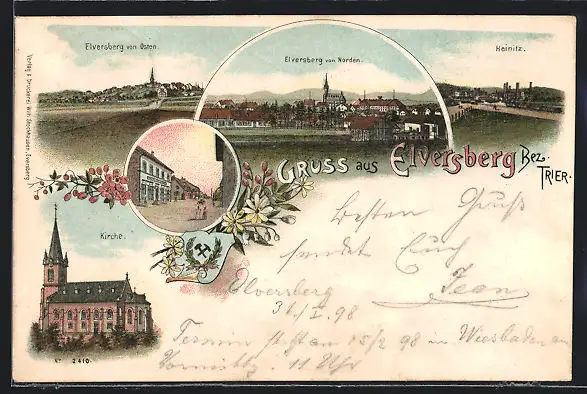 Elversberg von Osten.
Elversberg von Norden.
Heinitz.
Gruss aus Elversberg Bez.
Trier.
Kirche.
No 2410.
Besten Gruß
sendet Euch
Jean
Elversberg
31./I. 98
Termin statt am 15/2 98 in Wiesbaden
Vormittg. 11 Uhr